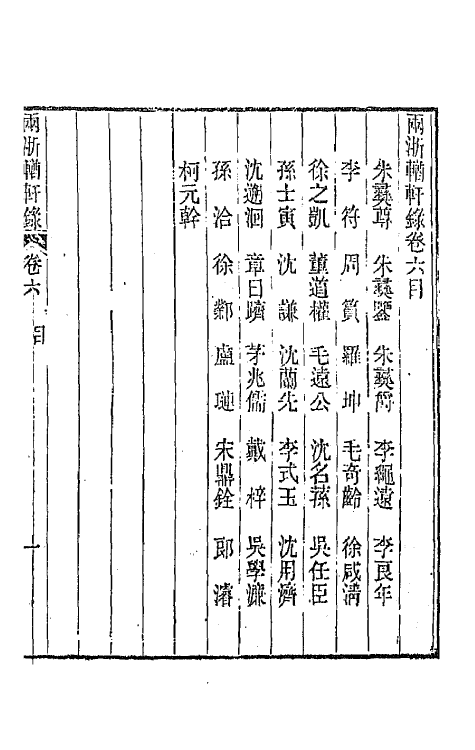 兩浙輶軒錄卷六目
朱彝尊 朱彝鑒 朱彝爵 李繩遠 李良年
李符 周篔 羅坤 毛奇齡 徐咸清
徐之凱 董道權 毛遠公 沈名蓀 吳任臣
孫士寅 沈謙 沈蘭先 李式玉 沈用濟
沈遡洄 章日躋 茅兆儒 戴梓 吳學濂
孫洽 徐鄰 盧璉 宋鼎銓 郞濬
柯元幹
兩浙輶軒錄 卷六 目 一